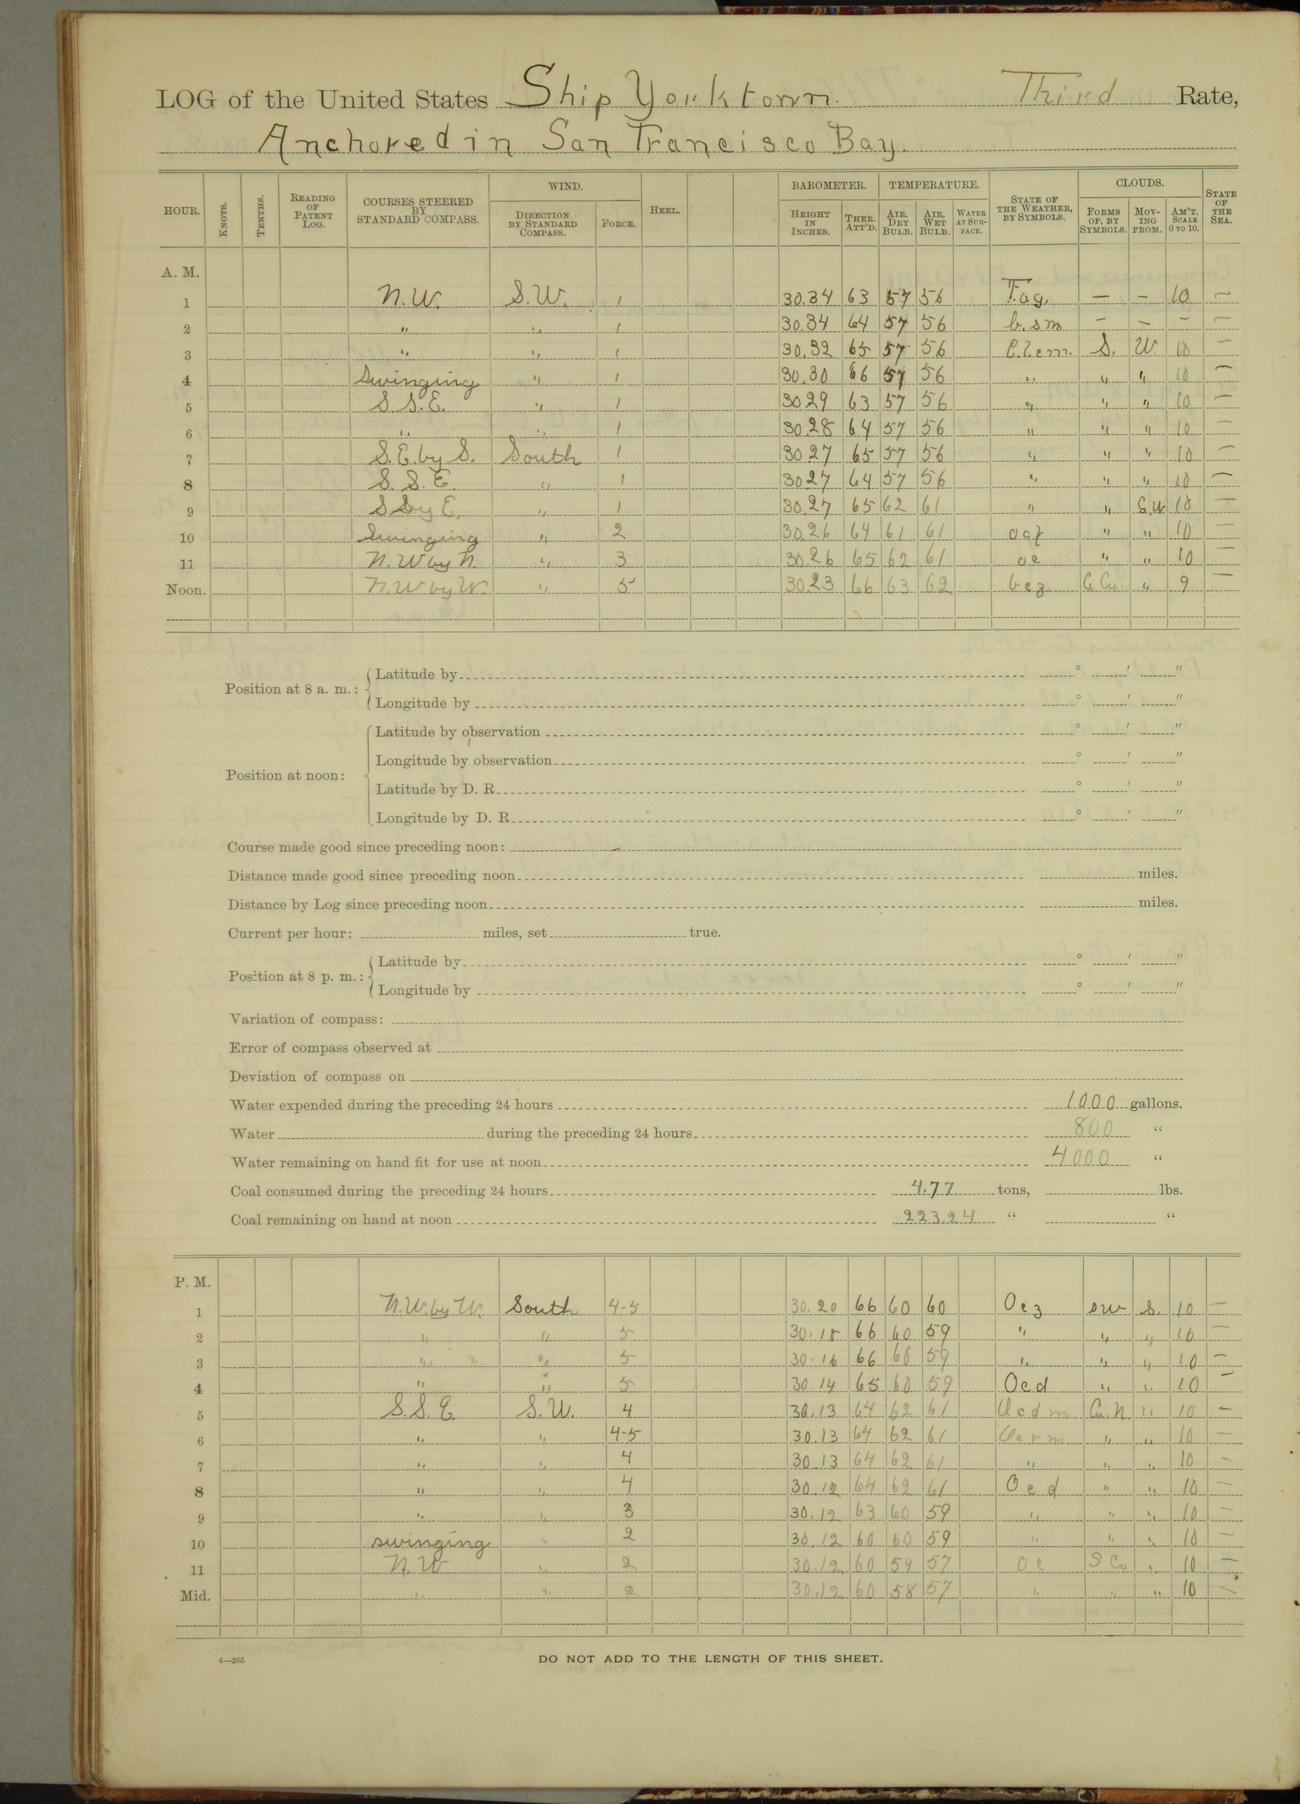 LOG of the United States Ship Yorktown. Third Rate,
Anchored in San Francisco Bay.
HOUR. KNOTS. TENTHS. READING OF PATENT LOG. COURSES STEERED BY STANDARD COMPASS. WIND. DIRECTION BY STANDARD COMPASS. FORCE. HEEL. BAROMETER. HEIGHT IN INCHES. THER. ATT'D. TEMPERATURE. AIR, DRY BULB. AIR, WET BULB. WATER AT SURFACE. STATE OF THE WEATHER, BY SYMBOLS. CLOUDS. FORMS OF, BY SYMBOLS. MOVING FROM. AM'T. SCALE 0 TO 10. STATE OF THE SEA.
A. M.
1 N.W. S.W. 1 30.34 63 57 56 — — 10 —
2 " " 1 30.34 64 57 56 — — — —
3 " " 1 30.32 65 57 56 S. W. 10 —
4 Swinging " 1 30.30 66 57 56 " " " 10 —
5 S.S.E. " 1 30 29 63 57 56 " " " 10 —
6 " " 1 30 28 64 57 56 " " " 10 —
7 S.E. by S. South 1 30 27 65 57 56 " " " 10 —
8 S.S.E. " 1 30 27 64 57 56 " " " 10 —
9 S by E. " 1 30.27 65 62 61 " " S.W. 10 —
10 Swinging " 2 30.26 64 61 61 ocz " " 10 —
11 N.W by N. " 3 30.26 65 62 61 oc " " 10 —
Noon. N.W by W. " 5 30.23 66 63 62 bcz " 9 —
Position at 8 a. m.: Latitude by ° ' "
Longitude by ° ' "
Position at noon: Latitude by observation ° ' "
Longitude by observation ° ' "
Latitude by D. R. ° ' "
Longitude by D. R. ° ' "
Course made good since preceding noon:
Distance made good since preceding noon miles.
Distance by Log since preceding noon miles.
Current per hour: miles, set true.
Position at 8 p. m.: Latitude by ° ' "
Longitude by ° ' "
Variation of compass:
Error of compass observed at
Deviation of compass on
Water expended during the preceding 24 hours 1000 gallons.
Water during the preceding 24 hours 800 "
Water remaining on hand fit for use at noon 4000 "
Coal consumed during the preceding 24 hours 4.77 tons, lbs.
Coal remaining on hand at noon 223.24 " "
P. M.
1 N.W. by W. South 4-5 30.20 66 60 60 Ocz SW S. 10 —
2 " " 5 30.18 66 60 59 " " " 10 —
3 " " 5 30.16 66 60 59 " " " 10 —
4 " " 5 30.14 65 60 59 Ocd " " 10 —
5 S.S.E S.W. 4 30.13 64 62 61 Ocdm Cu.N " 10 —
6 " " 4-5 30.13 64 62 61 Ocrm " " 10 —
7 " " 4 30.13 64 62 61 " " " 10 —
8 " " 4 30.12 64 62 61 Ocd " " 10 —
9 " " 3 30.12 63 60 59 " " " 10 —
10 swinging " 2 30.12 60 60 59 " " " 10 —
11 N.W " 2 30.12 60 59 57 Oc S Cu " 10 —
Mid. " " 2 30.12 60 58 57 " " " 10 —
4—265 DO NOT ADD TO THE LENGTH OF THIS SHEET.